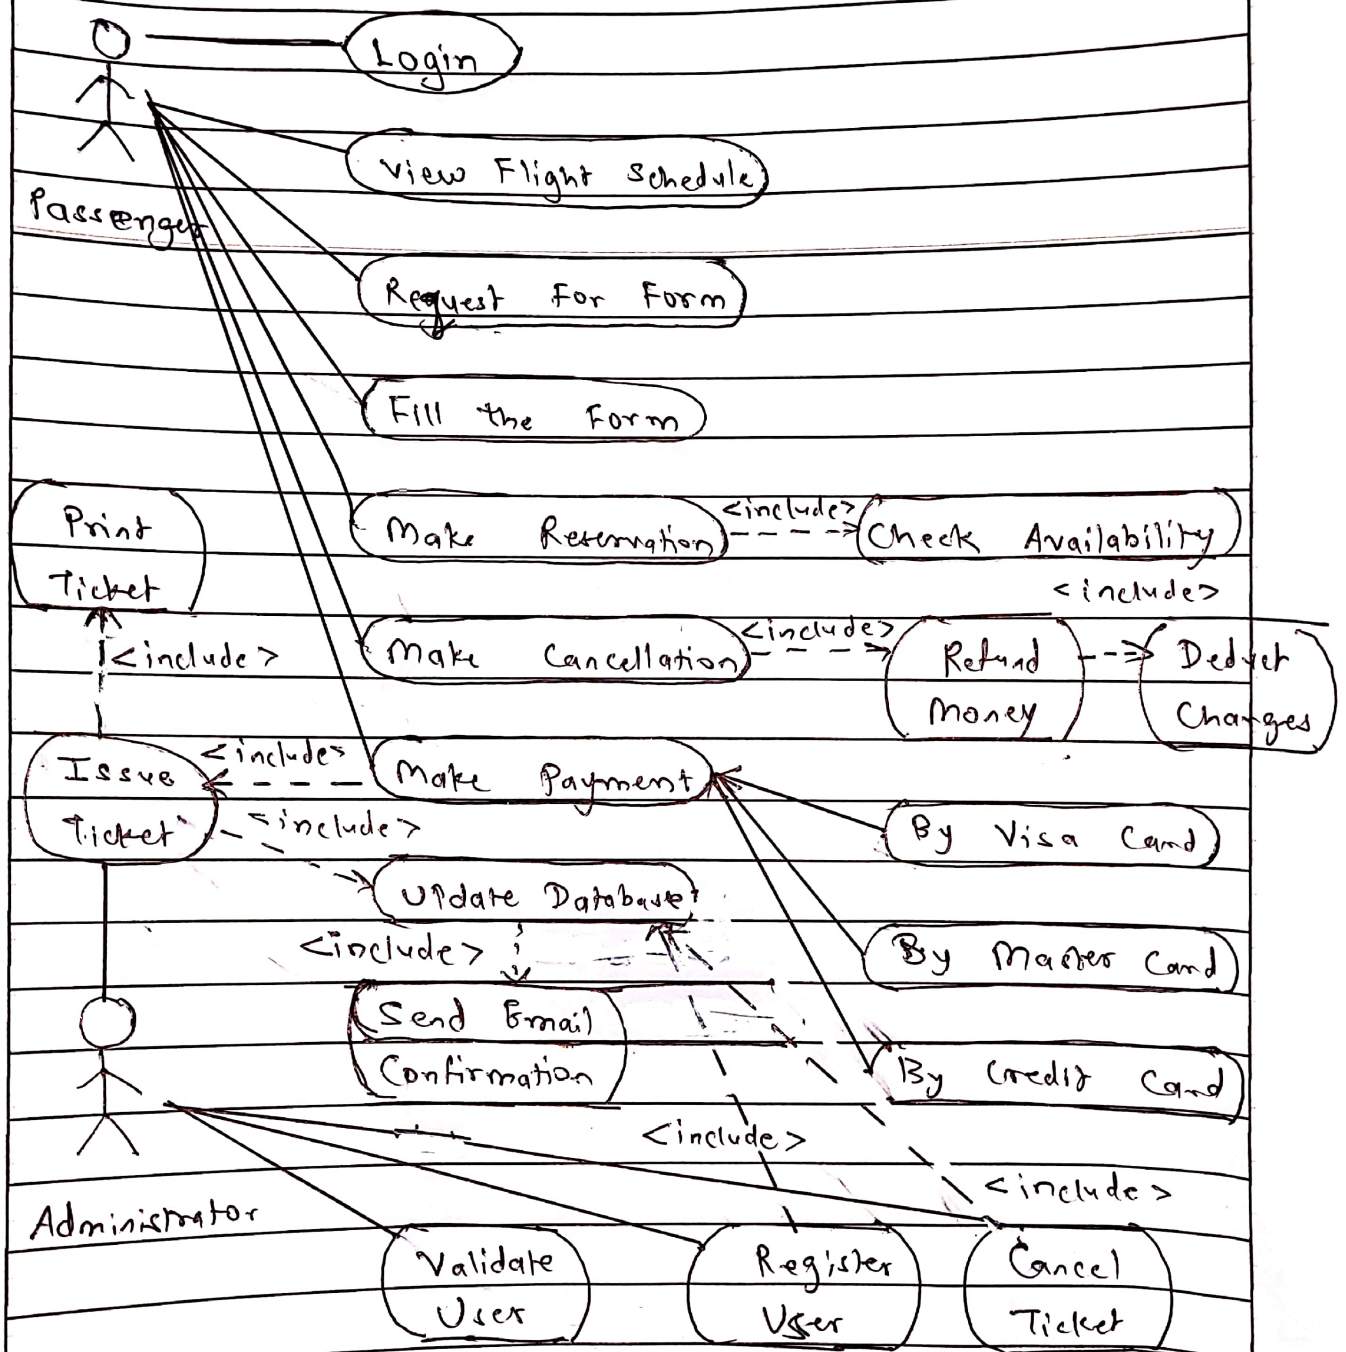 Login
View Flight Schedule
Passenger
Request For Form
Fill the Form
Print
Ticket
Make Reservation
<include>
Check Availability
<include>
<include>
Make Cancellation
<include>
Refund
Money
Deduct
Changes
Issue
Ticket
<include>
Make Payment
By Visa Card
<include>
Update Database
<include>
By Master Card
Send Email
Confirmation
By Credit Card
<include>
<include>
Administrator
Validate
User
Register
User
Cancel
Ticket